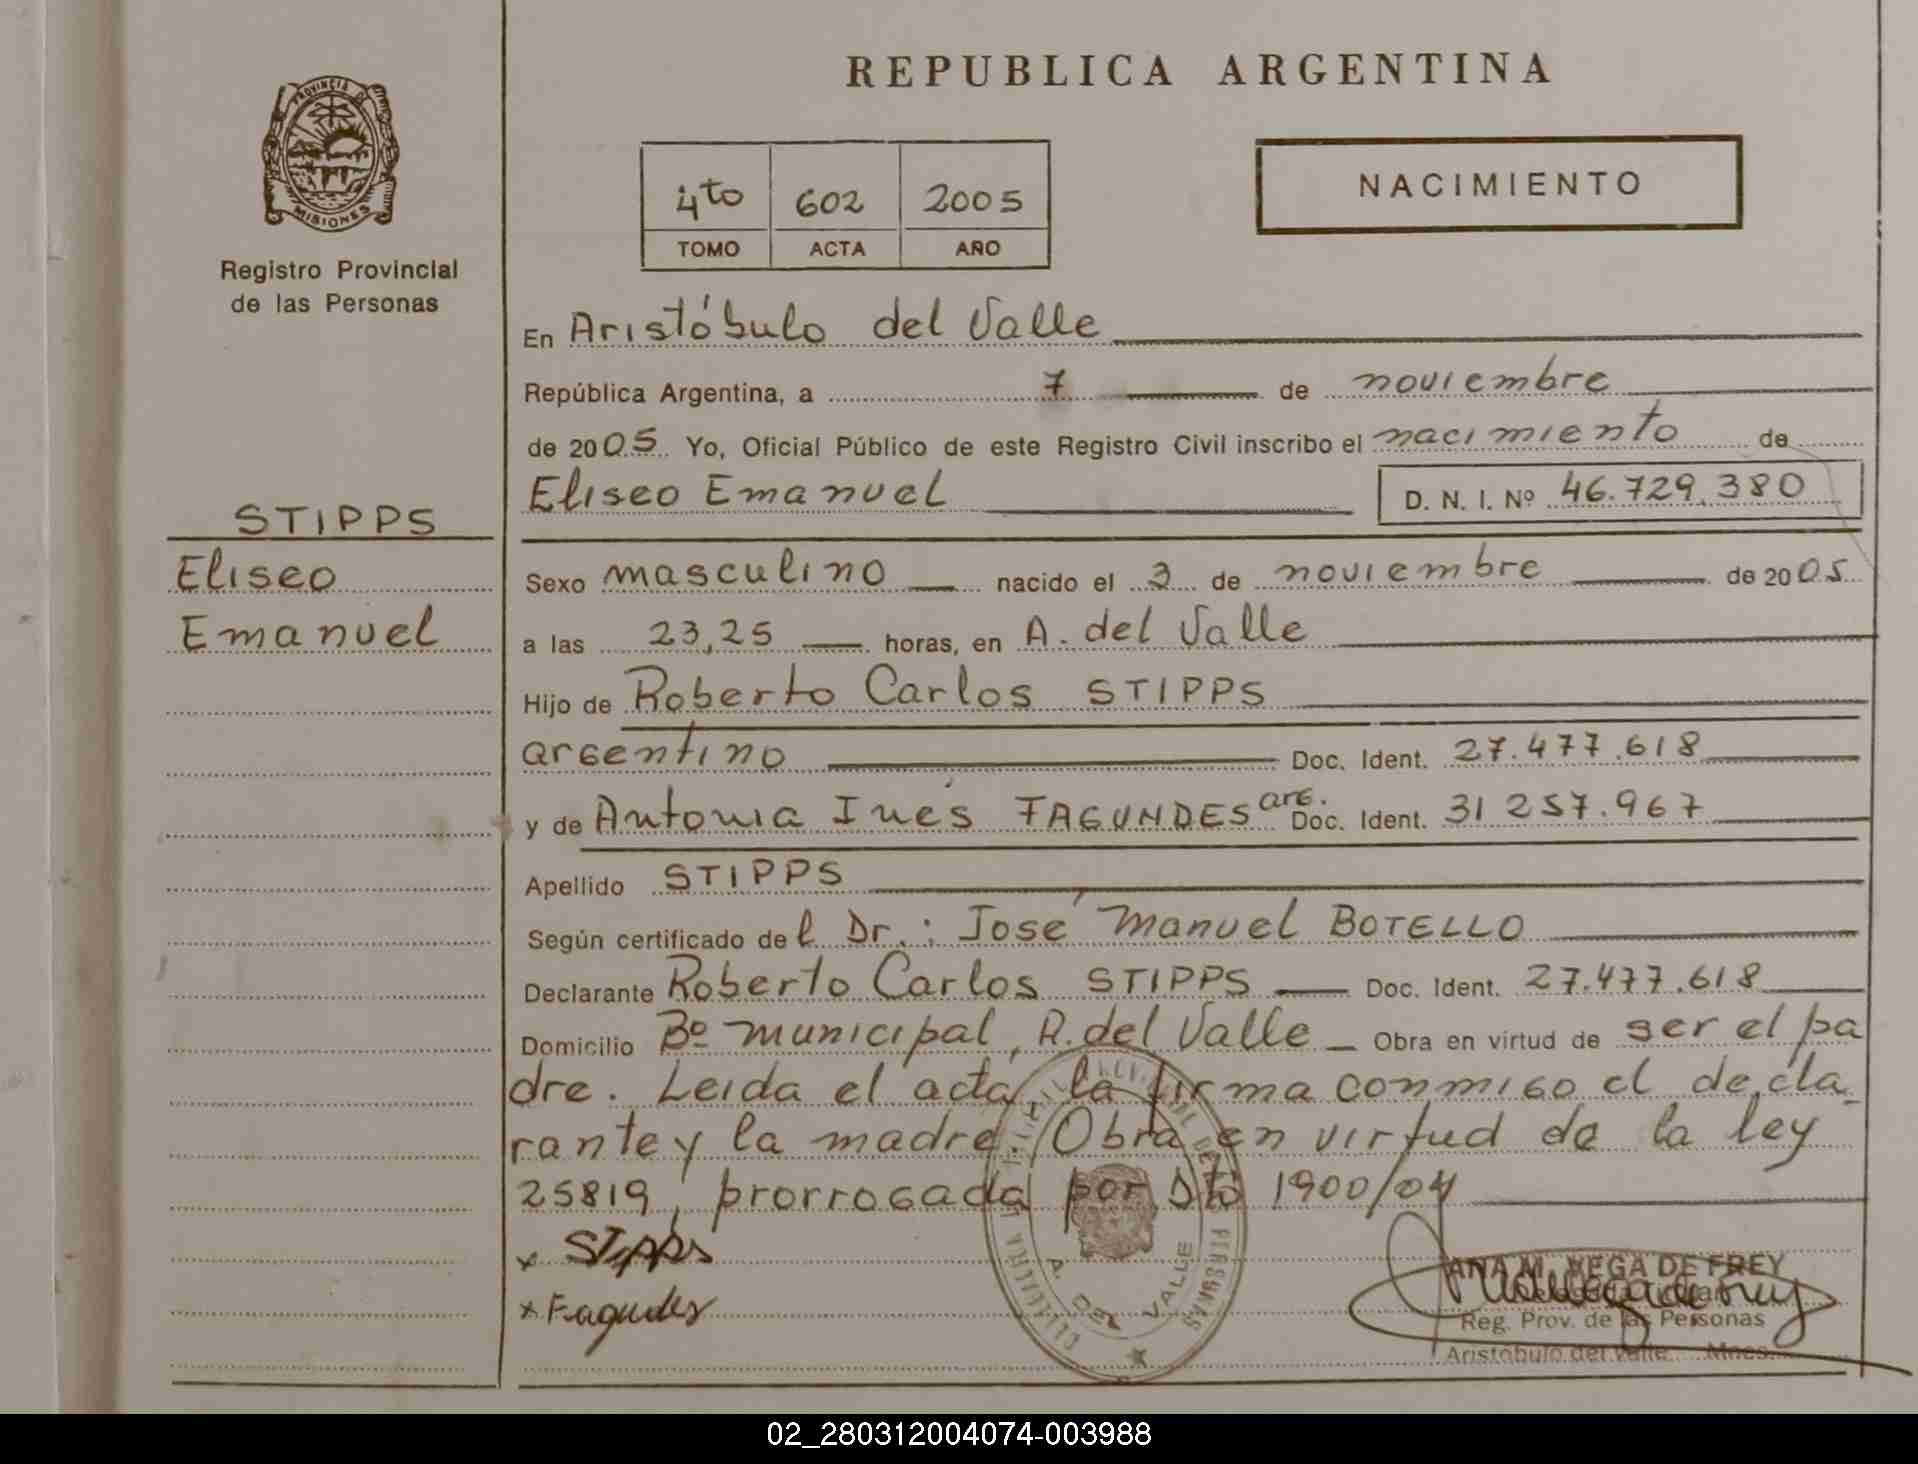 REPUBLICA ARGENTINA
PROVINCIA DE
MISIONES
Registro Provincial
de las Personas
4to 602 2005
TOMO ACTA AÑO
NACIMIENTO
En Aristóbulo del Valle
República Argentina, a 7 de noviembre
de 2005. Yo, Oficial Público de este Registro Civil inscribo el nacimiento de
Eliseo Emanuel D. N. I. Nº 46.729.380
STIPPS
Eliseo
Emanuel
Sexo masculino nacido el 3 de noviembre de 2005
a las 23,25 horas, en A. del Valle
Hijo de Roberto Carlos STIPPS
argentino Doc. Ident. 27.477.618
y de Antonia Inés FAGUNDES arg. Doc. Ident. 31 257.967
Apellido STIPPS
Según certificado del Dr.: José Manuel BOTELLO
Declarante Roberto Carlos STIPPS Doc. Ident. 27.477.618
Domicilio Bº municipal, A. del Valle Obra en virtud de ser el pa
dre. Leida el acta, la firma conmigo el decla_
rante y la madre. Obra en virtud de la ley
25819, prorrogada por Dto 1900/04
x STIPPS
x Fagundes
A. DEL VALLE
ANA M. VEGA DE FREY
Reg. Prov. de las Personas
Aristobulo del Valle Mnes.
02_280312004074-003988